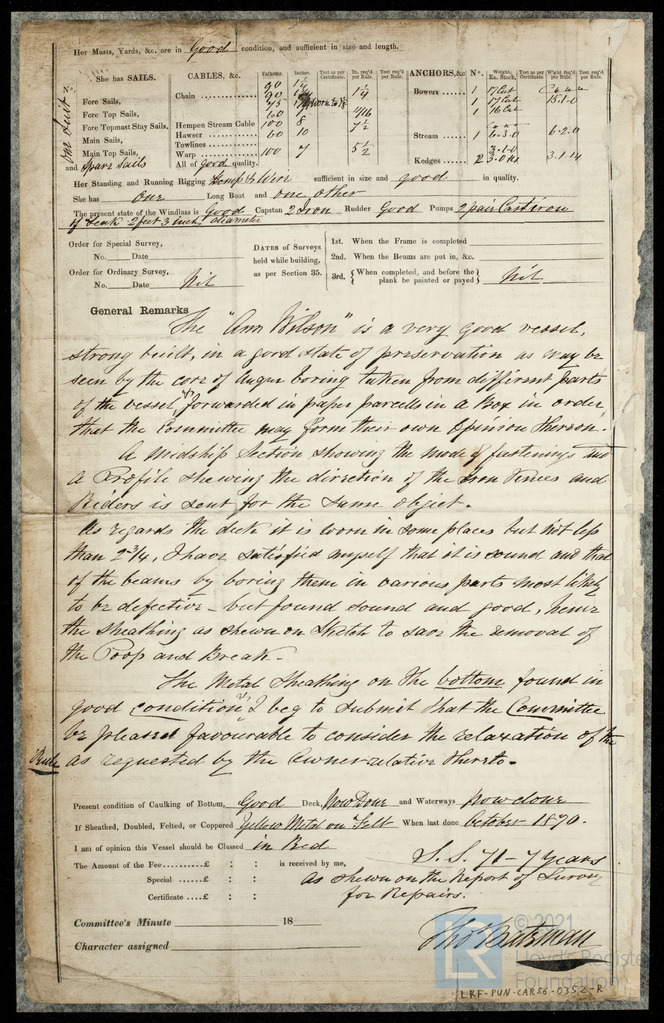 Her Masts, Yards, &c. are in Good condition, and sufficient in size and length.
She has SAILS. CABLES, &c. Fathoms. Inches. Test as per Certificate. In. req'd per Rule. Test req'd per Rule. ANCHORS, &c. No. Weight. Ex. Stock. Test as per Certificate. Wight req'd per Rule. Test req'd per Rule.
One Suit &
Fore Sails,
Fore Top Sails,
Fore Topmast Stay Sails,
Main Sails,
Main Top Sails,
and Spare Sails
Chain
Hempen Stream Cable 100 8 7 1/2
Hawser 60 10
Towlines
Warp 100 7 5 1/2
All of Good quality.
Bowers 1 17 Cwt
1 17 Cwt 15-1-0
1 16 Cwt
Stream 1 6-3-0 6-2-0
Kedges 2 3-1-14
Her Standing and Running Rigging Hemp & Wire sufficient in size and good in quality.
She has One Long Boat and one other
The present state of the Windlass is Good Capstan 2 Iron Rudder Good Pumps 2 pair Cast iron
if teak 2 feet 3 inch diameter
Order for Special Survey,
No. Date
Order for Ordinary Survey,
No. Date Nil
DATES of Surveys held while building, as per Section 35.
1st. When the Frame is completed
2nd. When the Beams are put in, &c.
3rd. When completed, and before the plank be painted or payed Nil
General Remarks
The "Ann Wilson" is a very good vessel,
strong built, in a good state of preservation as may be
seen by the core of Auger boring taken from different parts
of the vessel, & forwarded in paper parcels in a Box in order
that the Committee may form their own Opinion thereon.
A Midship Section showing the mode of fastenings and
a Profile shewing the direction of the Iron Knees and
Riders is sent for the same object.
As regards the deck it is worn in some places but not less
than 2 3/4, I have satisfied myself that it is sound and that
of the beams by boring them in various parts most likely
to be defective - but found sound and good, hence
the sheathing as shewn on Sketch to save the removal of
the Poop and Break.
The Metal Sheathing on the bottom found in
good condition, & I beg to submit that the Committee
be pleased favourable to consider the relaxation of the
Rule as requested by the Owner relative thereto.
Present condition of Caulking of Bottom, Good Deck, Now Done and Waterways now done
If Sheathed, Doubled, Felted, or Coppered Yellow Metal on Felt When last done October 1870.
I am of opinion this Vessel should be Classed in Red
S.S. 71 - 7 years
as shewn on the Report of Survey
for Repairs.
The Amount of the Fee £ : : is received by me,
Special £ : :
Certificate £ : :
Committee's Minute 18
Character assigned
Thos Bateman
© 2021
Lloyd's Register
Foundation
LR
LRF-PUN-CAR56-0352-R